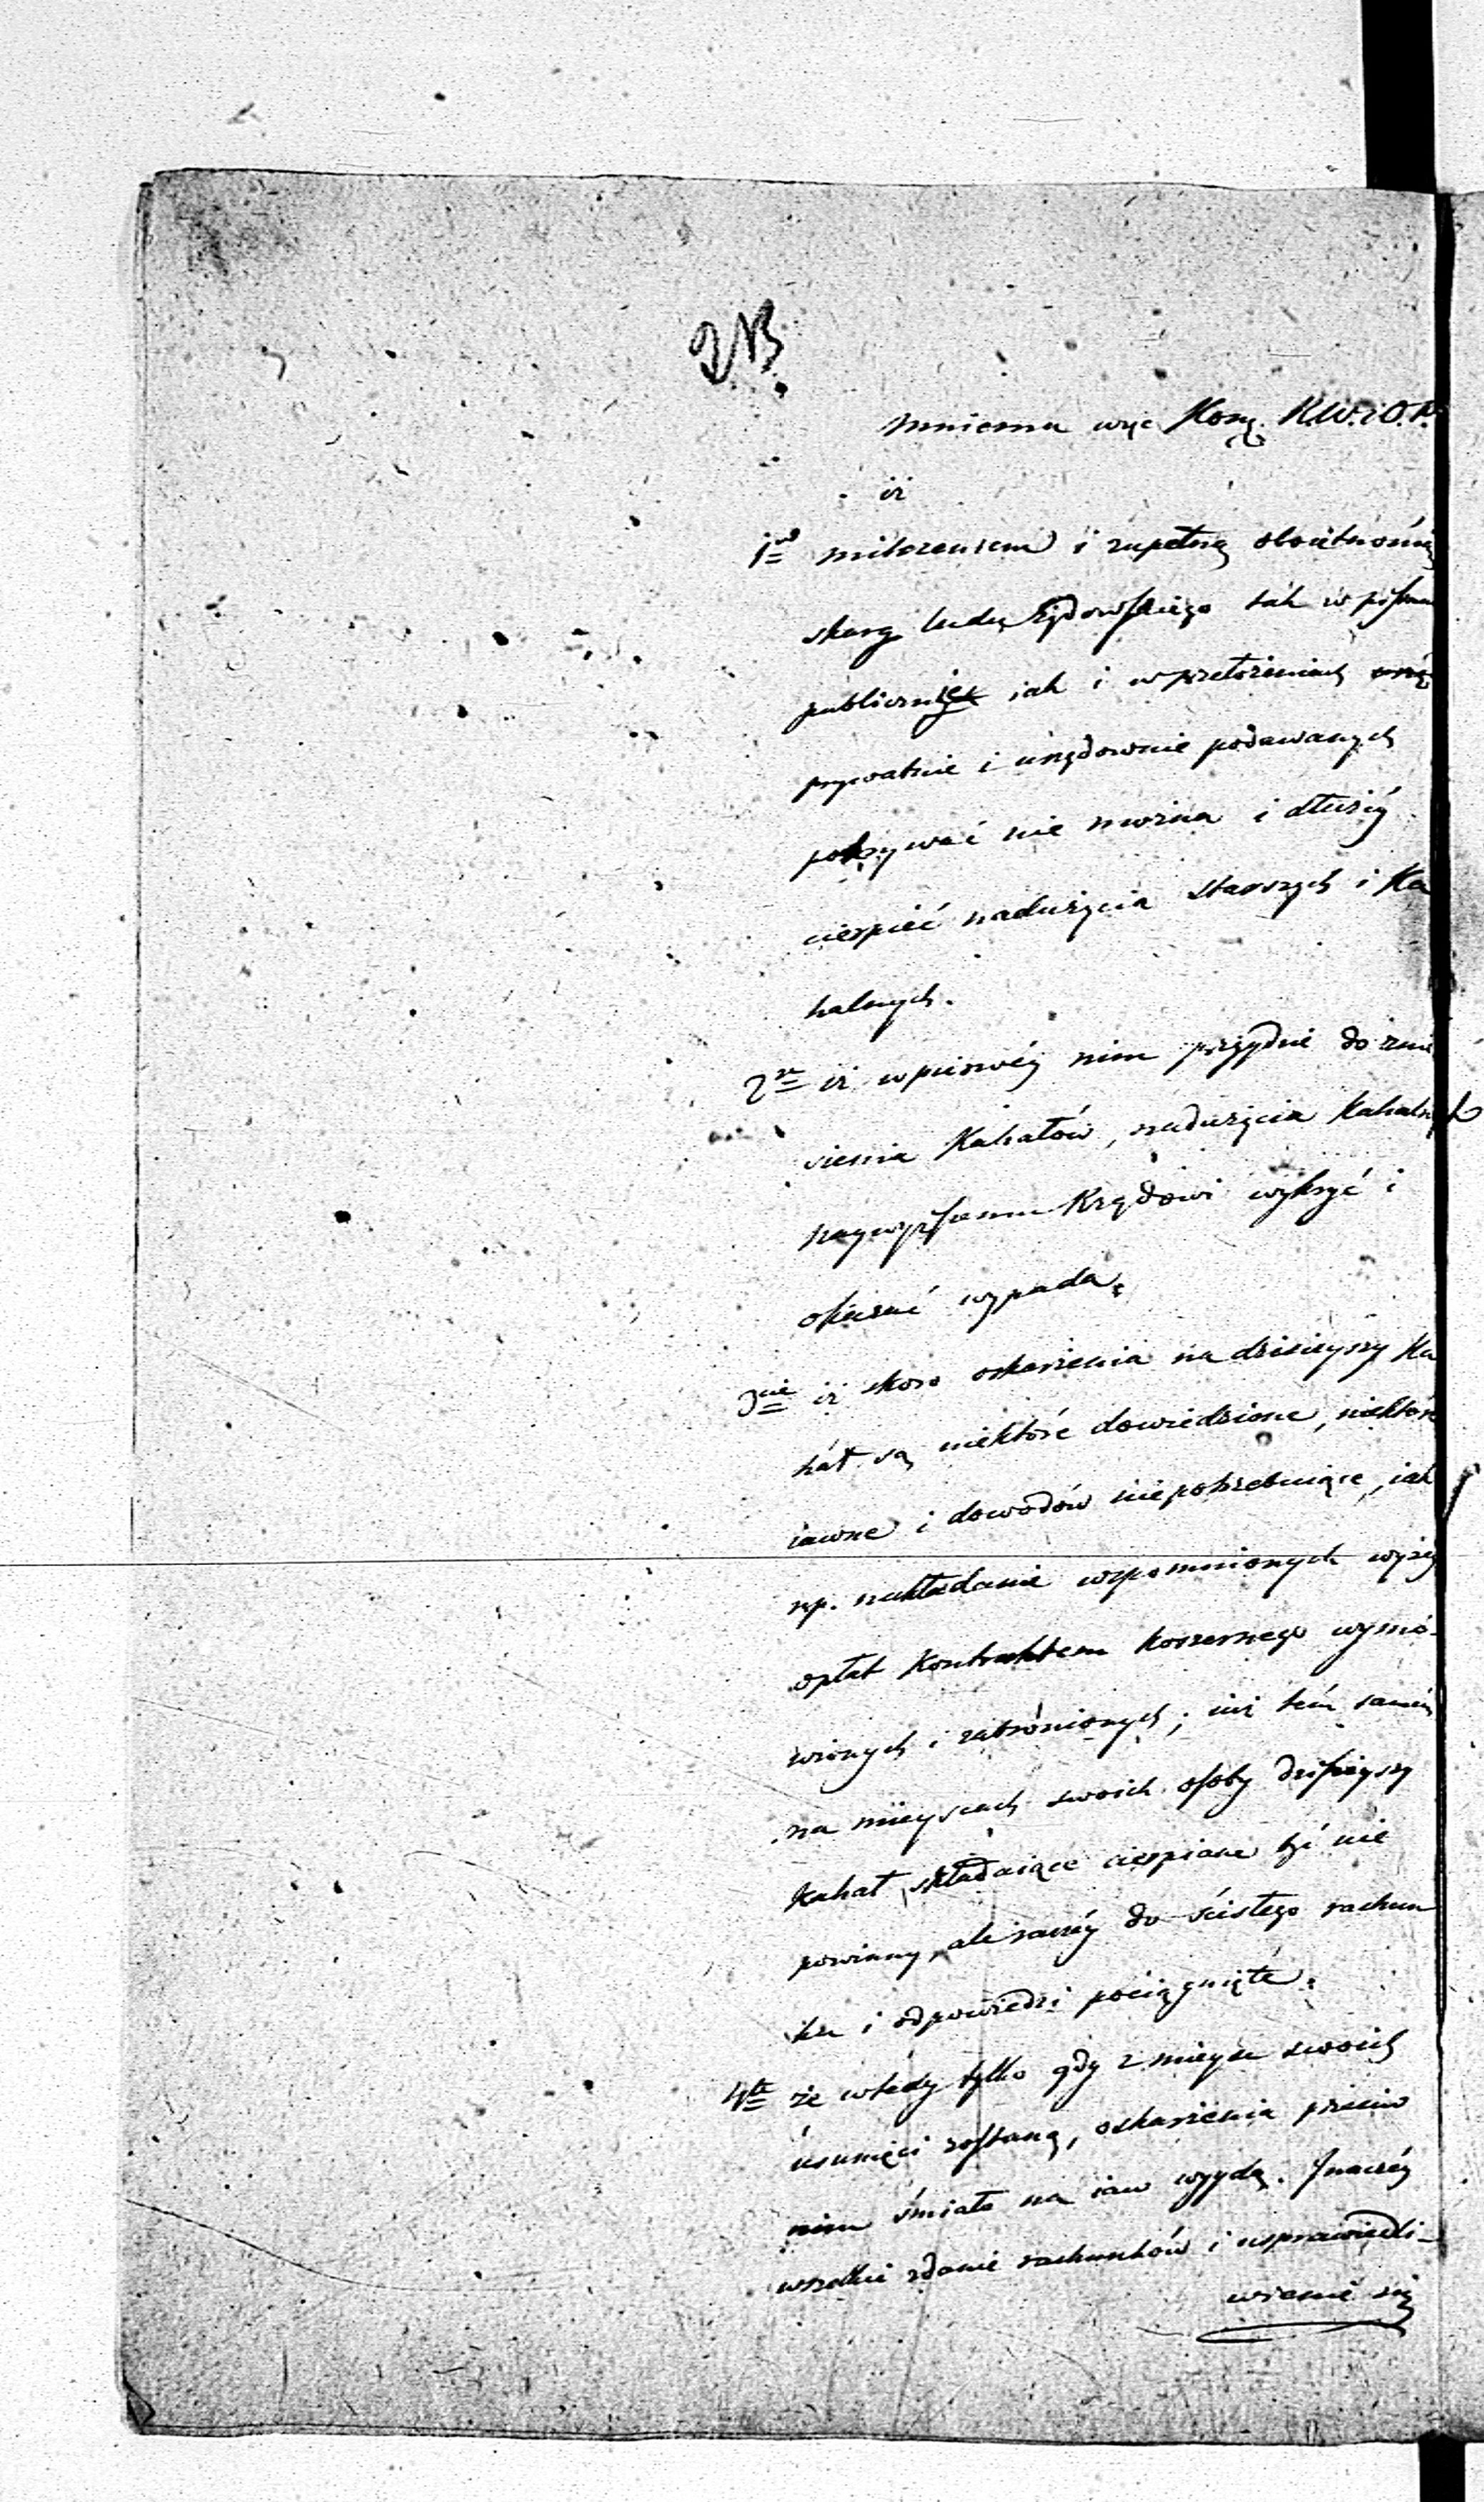 NB.
mniema więc Kom. R.W.i O.P.
iż
1mo milczeniem i zupełną oboiętnością
skarg ludu Żydowskiego tak w pismach
publicznych iak i w przełożeniach
prywatnie i urzędownie podawanych
pokrywać nie można i dłużéy
cierpieć nadużycia starszych i Ka
halnych.
2re iż wpierwéy nim przyydzie do znie
sienia Kahałów, nadużycia Kahalnych
naywyższemu Rządowi wykryć i
okazać wypada.
3cie iż skoro oskarżenia na dzisieyszy Ka
hał są niektóre dowiedzione, niektóre
iawne i dowodów niepotrzebuiące, iak
np. nakładanie wspomnionych wyżéy
opłat Kontraktem koszernego wymó-
wionych i zabronionych; iuż tém samém
na mieyscach swoich osoby dzisieyszy
Kahał składaiące cierpiane być nie
powinny, ale raczéy do ścisłego rachun
ku i odpowiedzi pociągnięte.
4te że wtedy tylko gdy z mieysc swoich
usunięci zostaną, oskarżenia przeciw
nim śmiało na iaw wyydą. Inaczéy
wszelkie zdanie rachunków i usprawiedli-
wienie się